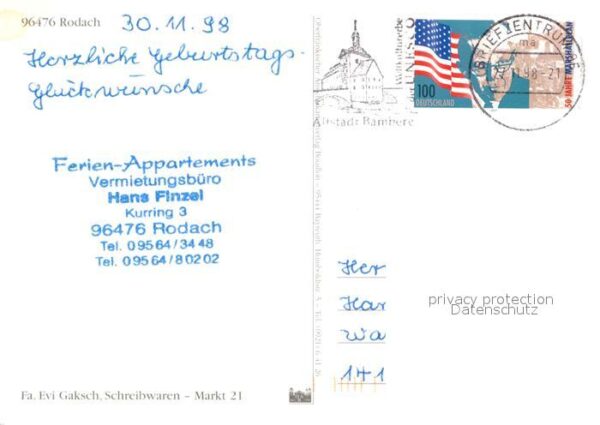 96476 Rodach
30.11.98
Herzliche Geburtstags-
Glückwünsche
Ferien-Appartements
Vermietungsbüro
Hans Finzel
Kurring 3
96476 Rodach
Tel. 09564/3448
Tel. 09564/80202
Fa. Evi Gaksch, Schreibwaren – Markt 21
Weltkulturerbe
der UNESCO
Altstadt Bamberg
100
DEUTSCHLAND
50 JAHRE MARSHALLPLAN
BRIEFZENTRUM
ma
98-21
Her
Har
Wa
141
privacy protection
Datenschutz